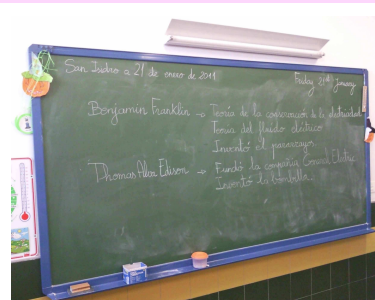 San Isidro a 21 de enero de 2011
Friday 21st January
Benjamin Franklin → Teoría de la conservación de la electricidad
Teoría del fluido eléctrico
Inventó el pararrayos
Thomas Alva Edison → Fundó la compañía General Electric
Inventó la bombilla.